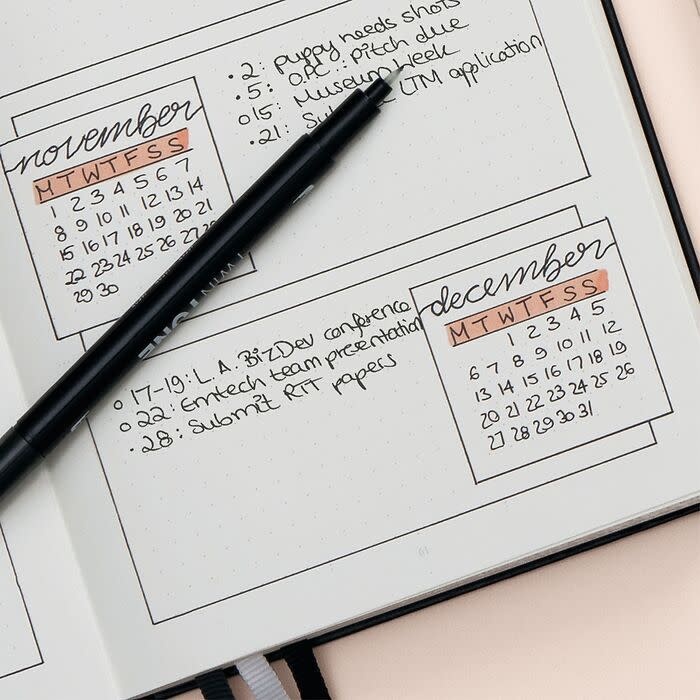 • 2: puppy needs shots
• 5: O.P.C.: pitch due
o 15: Museum Week
• 21: LTM application
november
M T W T F S S
1 2 3 4 5 6 7
8 9 10 11 12 13 14
15 16 17 18 19 20 21
22 23 24 25 26 27 28
29 30
TWIN TONE
december
M T W T F S S
1 2 3 4 5
6 7 8 9 10 11 12
13 14 15 16 17 18 19
20 21 22 23 24 25 26
27 28 29 30 31
o 17-19: L.A. BizDev conference
o 22: Emtech team presentation
• 28: Submit RIT papers
61